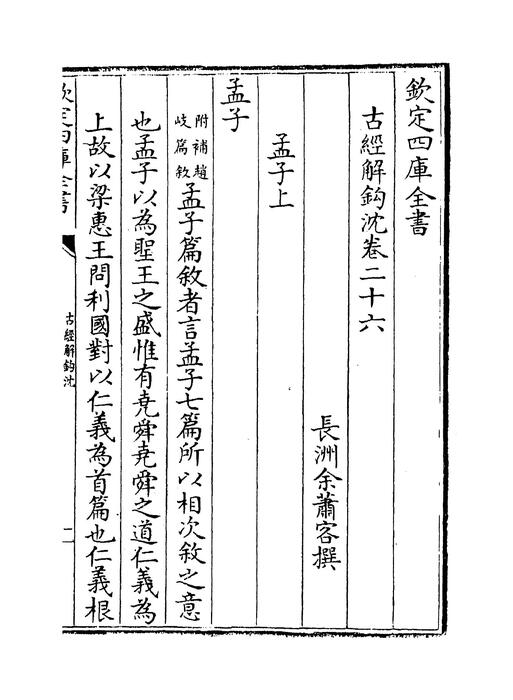 欽定四庫全書
古經解鈎沈卷二十六
長洲余蕭客撰
孟子上
孟子
附補趙
岐篇敘
孟子篇敘者言孟子七篇所以相次敘之意
也孟子以為聖王之盛惟有堯舜堯舜之道仁義為
上故以梁惠王問利國對以仁義為首篇也仁義根
欽定四庫全書
古經解鈎沈